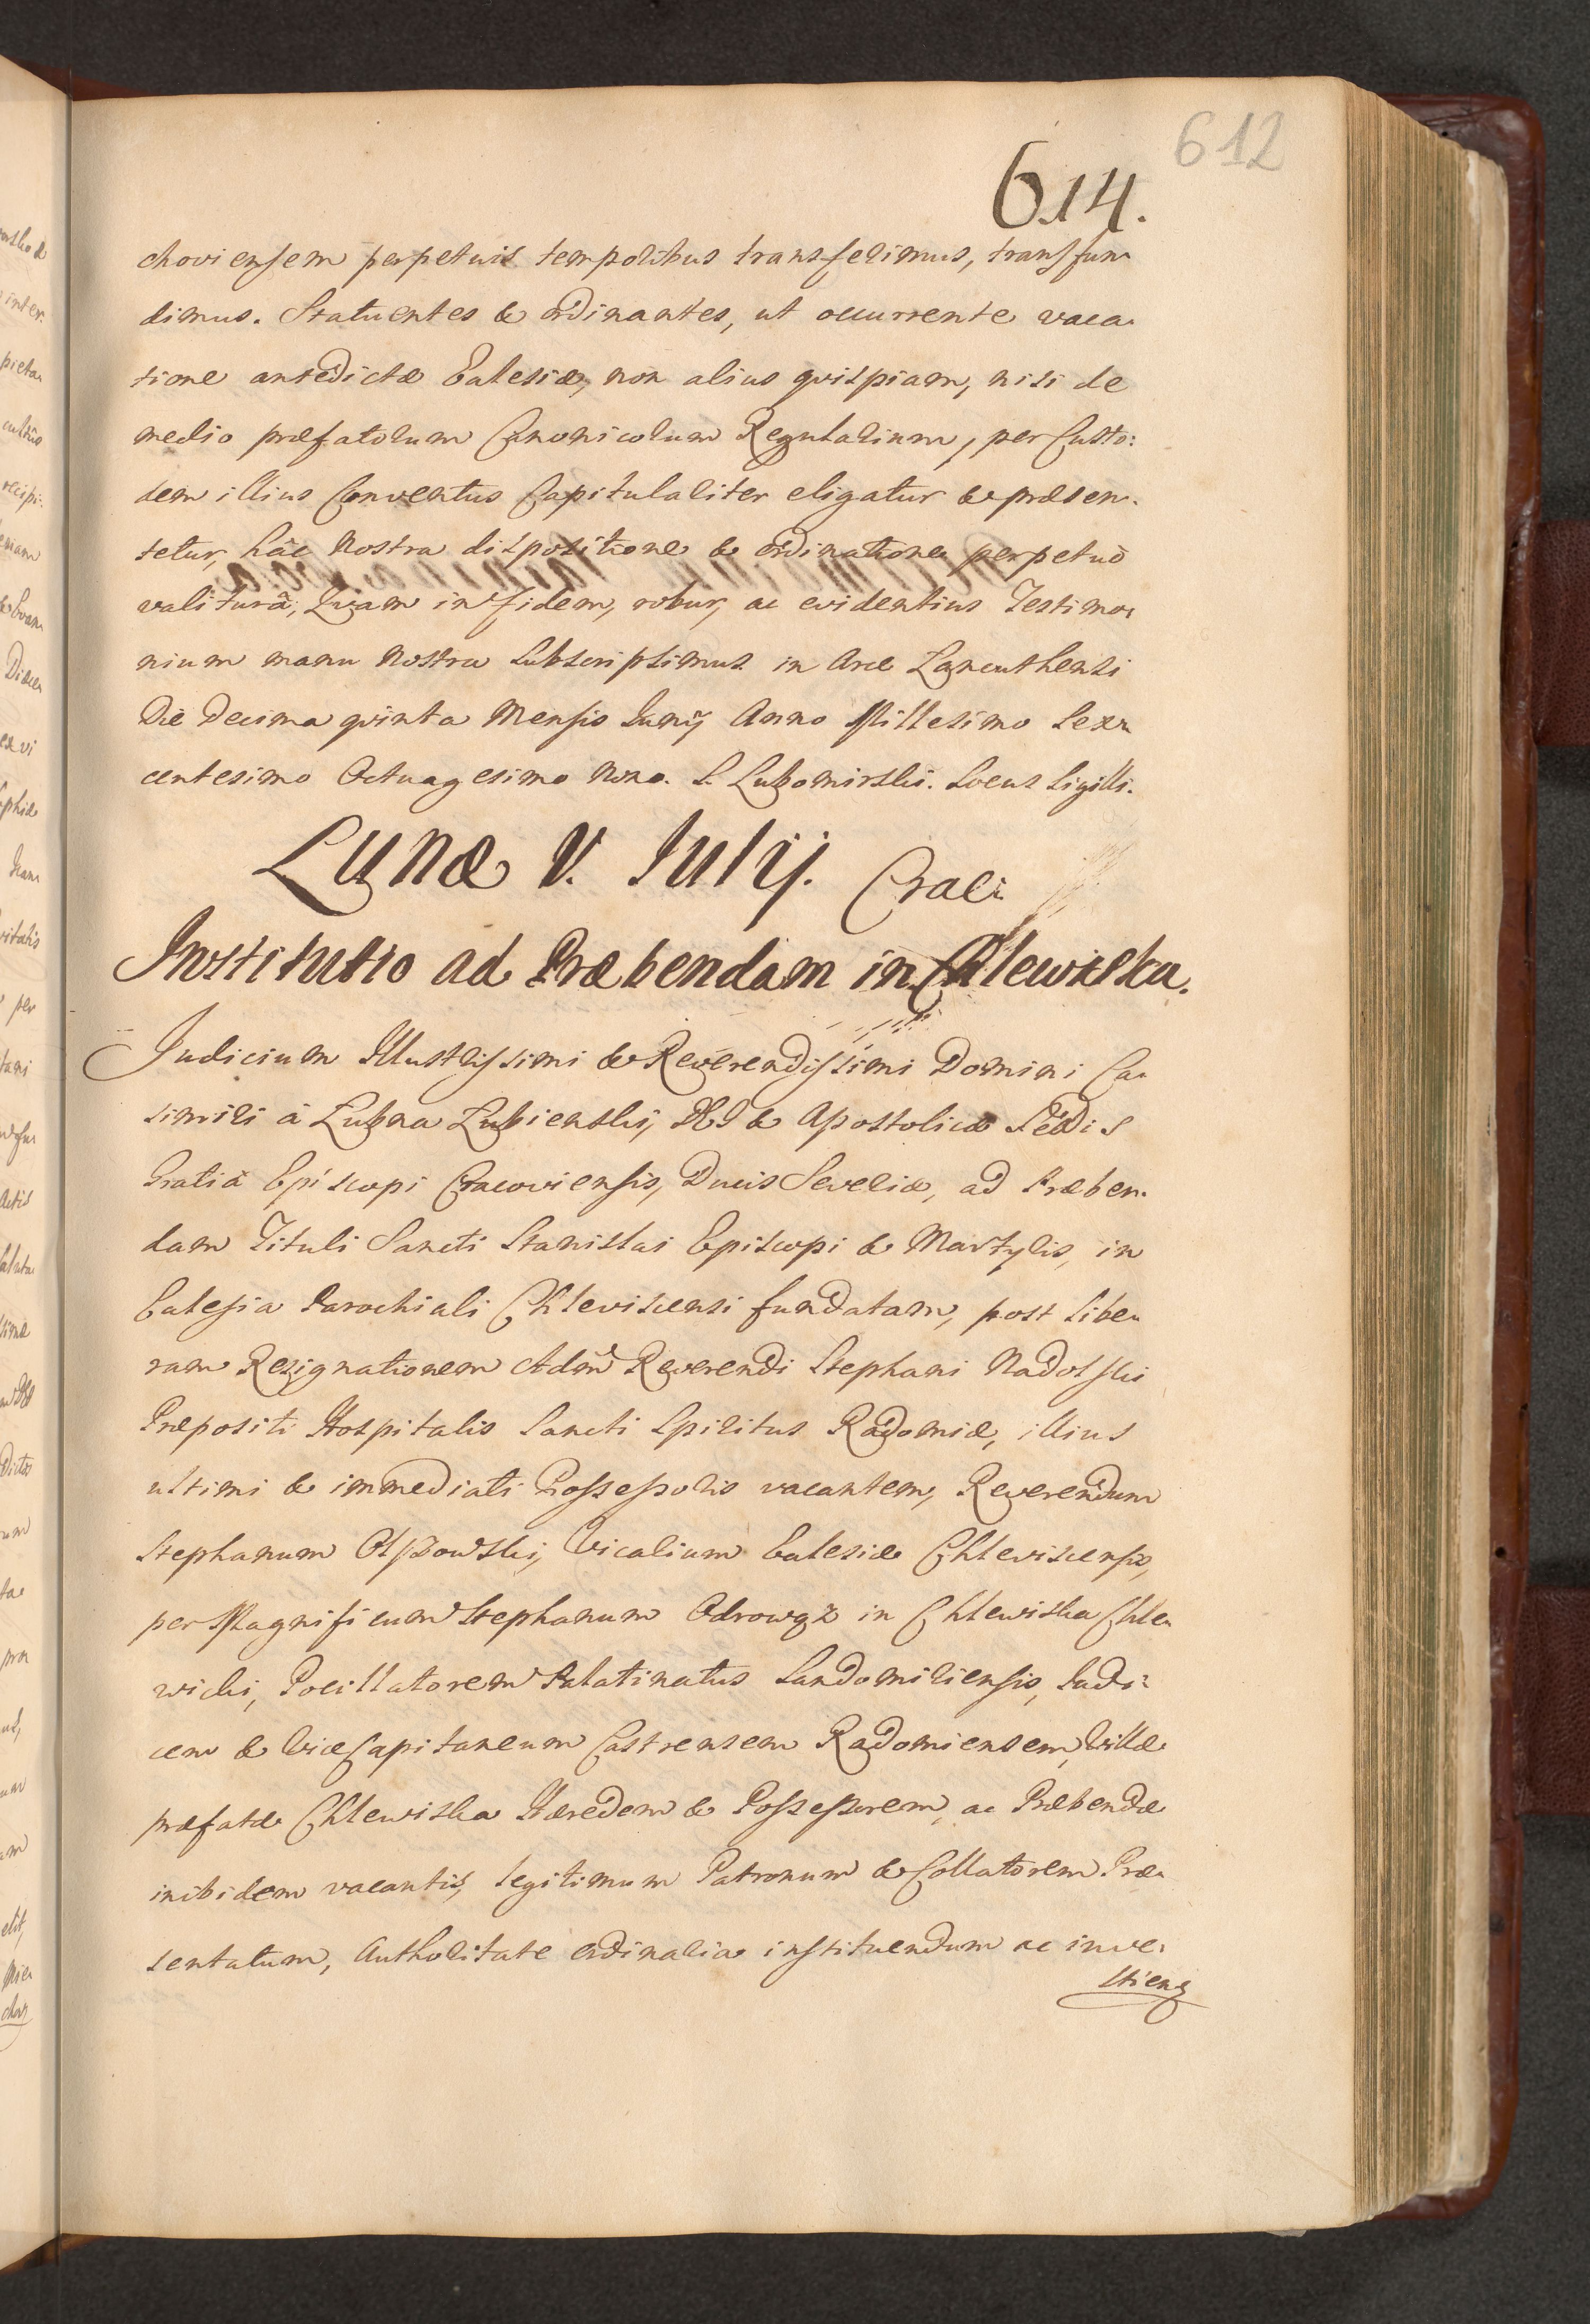 612
614.
choviensem perpetuis temporibus transferimus, transfun-
dimus. Statuentes & ordinantes, ut occurrente vaca-
tione antedictæ Ecclesiæ, non alius quispiam, nisi de
medio præfatorum Canonicorum Regularium, per Custo:
dem illius Conventus Capitulariter eligatur & præsen-
tetur, hâc Nostra dispositione & ordinatione perpetuò
valiturâ, Quam in fidem, robur, ac evidentius Testimo-
nium manu Nostra subscripsimus in Arce Łancuthensi
Die Decima quinta Mensis Junij Anno Millesimo Sex-
centesimo Octuagesimo Nono. S. Lubomirski. Locus Sigilli.
Lunæ V. Iulij. Crac:
Institutio ad Præbendam in Chlewiska.
Judicium Illustrissimi & Reverendissimi Domini Ca-
simiri à Łubna Łubienski, DEI & Apostolicæ Sedis
Gratiâ Episcopi Cracoviensis, Ducis Severiæ, ad Præben-
dam Tituli Sancti Stanislai Episcopi & Martyris, in
Ecclesia Parochiali Chleviscensi fundatam, post libe-
ram Resignationem Adm̃ Reverendi Stephani Nadolski
Præpositi Hospitalis Sancti Spiritus Radomiæ, illius
ultimi & immediati Possessoris vacantem, Reverendum
Stephanum Olszowski, Vicarium Ecclesiæ Chleviscensis,
per Magnificum Stephanum Odrowąz in Chlewiska Chle-
wicki, Pocillatorem Palatinatus Sandomiriensis, Iudi:
cem & ViceCapitaneum Castrensem Radomiensem, Villæ
præfatæ Chlewiska Hæredem & Possessorem, ac Præbendæ
inibidem vacantis, legitimum Patronum & Collatorem Præ-
sentatum, Authoritate ordinaria instituendum ac inve-
stien̄